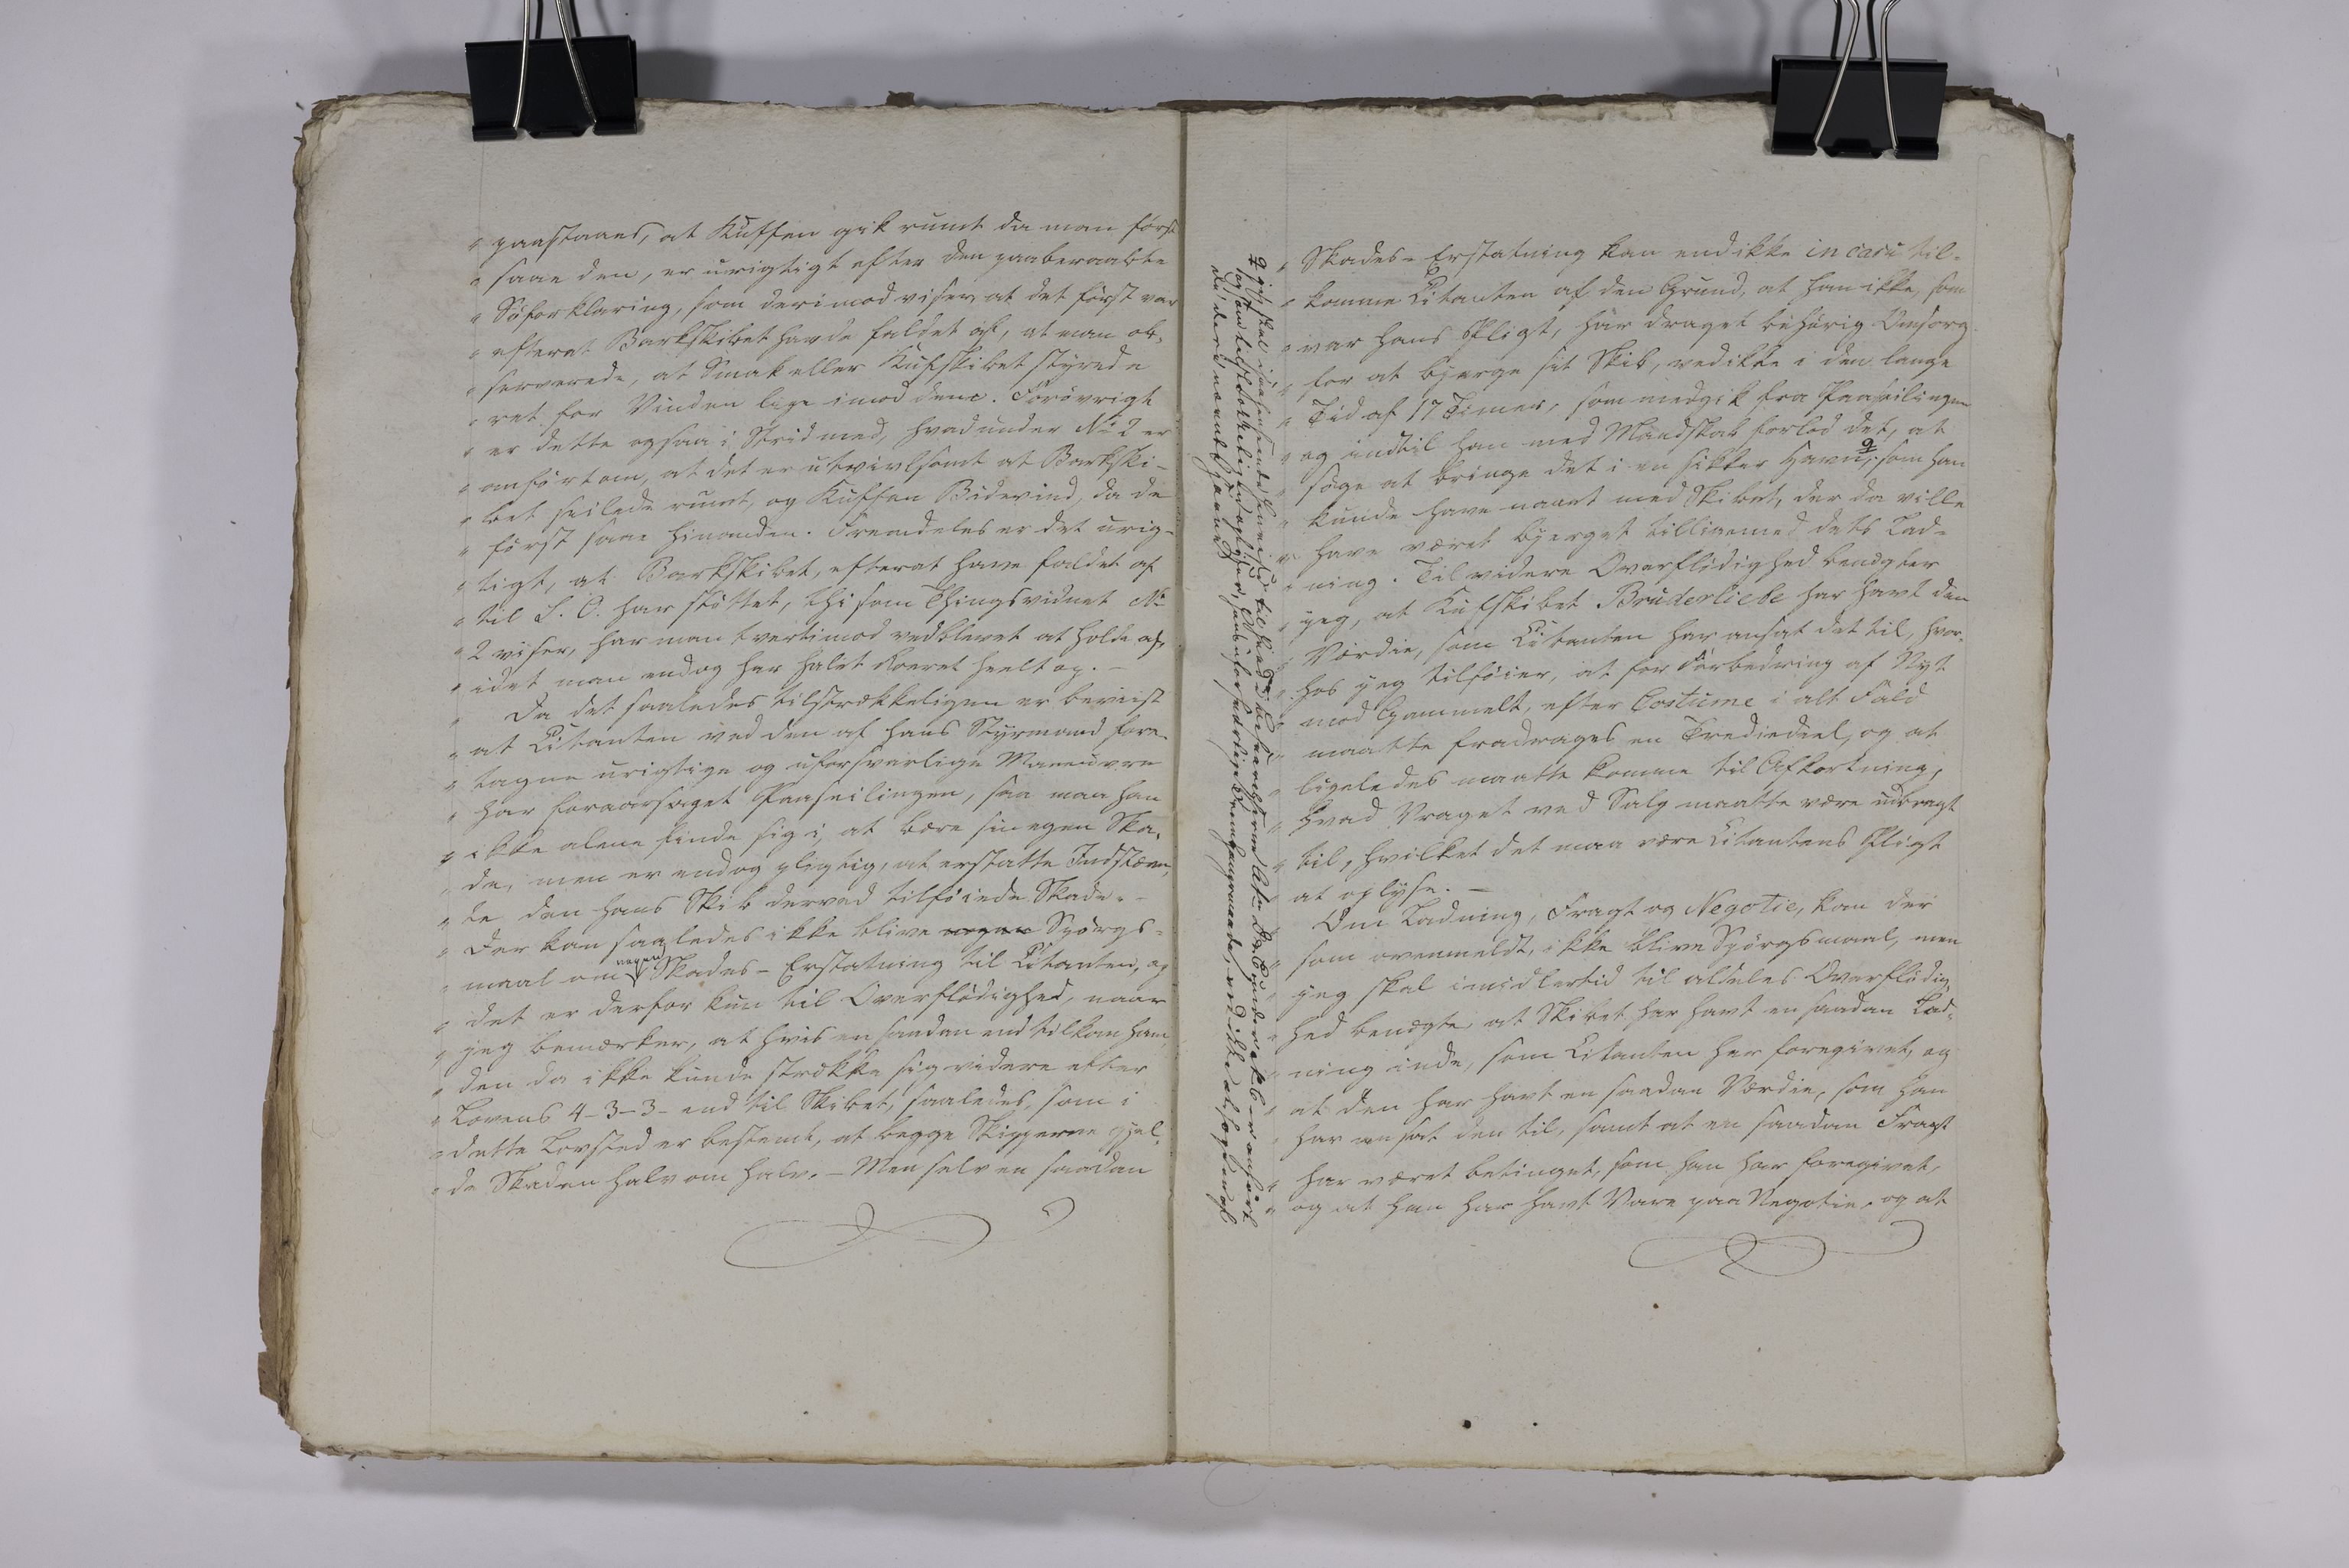 " paastaaes, at Kuffen gik rumt da man først
" saae den, er urigtigt efter den paaberaabte
" Söforklaring, som derimod viser, at det först var
" efterat Barkskibet havde faldet af, at man ob-
" serverede, at Smak eller Kufskibet styrede
" ret for Vinden lige imod dem. Forövrigt
" er dette ogsaa i Strid med, hvad under No 2 er
" anfört om, at det er utvivlsomt at Barkski-
" bet seilede rumt, og Kuffen Bidevind, da de
" först saae hinanden. Fremdeles er det urig-
" tigt, at Barkskibet, efterat have faldet af
" til S. O. har stöttet, thi som Thingsvidnet No
" 2 viser, har man tvertimod vedblevet at holde af,
" idet man endog har halet Roeret heelt op. –
" Da det saaledes tilstrækkeligen er beviist
" at Citanten ved den af hans Styrmand fore-
" tagne urigtige og uforsvarlige Maneuvre
" har foraarsaget Paaseilingen, saa maa han
" ikke alene finde sig i, at bære sin egen Ska-
" de, men er endog pligtig, at erstatte Indstævn-
" te den hans Skib derved tilföiede Skade. –
" Der kan saaledes ikke blive nogen Spörgs-
" maal om nogen Skades-Erstatning til Citanten, og
" det er derfor kun til Overflödighed, naar
" jeg bemærker, at hvis en saadan end tilkom ham,
" den da ikke kunde strække sig videre efter
" Lovens 4-3-3- end til Skibet, saaledes, som i
" dette Lovsted er bestemt, at begge Skipperne gjel-
" de Skaden halv om halv. – Men selv en saadan
" Skades-Erstatning kan end ikke in casu til-
" komme Citanten af den Grund, at han ikke, som
" var hans Pligt, har draget behörig Omsorg
" for at bjerge sit Skib, ved ikke i den lange
" Tid af 17 Timer, som medgik fra Paaseilingen
" og indtil han med Mandskab forlod det, at
" söge at bringe det i en sikker Havn, som han
" kunde have naaet med Skibet, der da ville
" have været bjerget tilligemed dets Lad-
" ning. Til videre Overflödighed benægter
" jeg, at Kufskibet Bruderliebe har havt den
" Værdie, som Citanten har ansat det til, hvor-
" hos jeg tilföier, at for Forbedring af Nyt
" mod Gammelt, efter Costume i alt Fald
" maatte fradrages en Trediedeel, og at
" ligeledes maatte komme til Afkortning,
" hvad Vraget ved Salg maatte være udbragt
" til, hvilket det maa være Citantens Pligt
" at oplyse. –
" Om Ladning, Fragt og Negotie, kan der
" som ovenmeldt, ikke blive Spörgsmaal, men
" jeg skal imidlertid til aldeles Overflödig-
" hed benægte, at Skibet har havt en saadan Lad-
" ning inde, som Citanten har foregivet, og
" at den har havt en saadan Værdie, som han
" har ansat den til, samt at en saadan Fragt
" har været betinget, som han har foregivet,
" og at han har havt Vare paa Negotie, og at